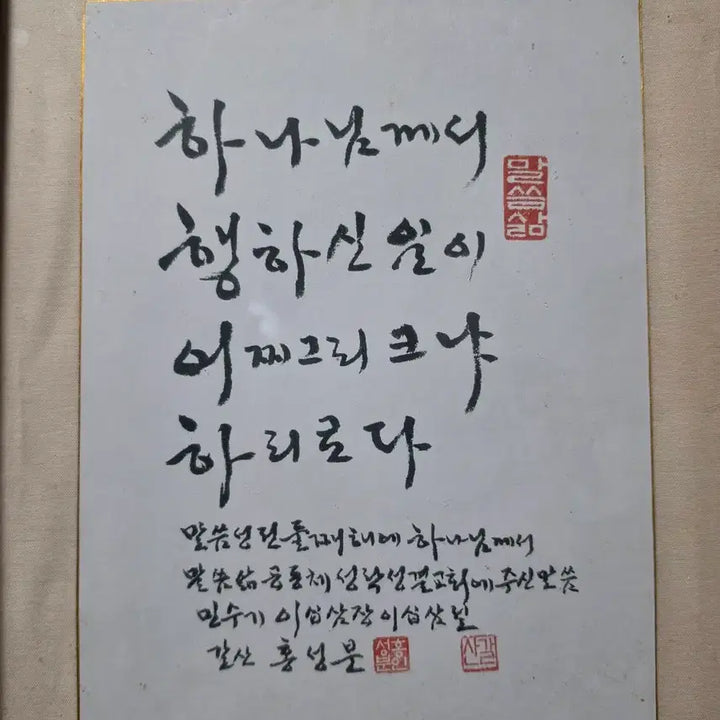 하나님께서
말씀삶
행하신 일이
어찌 그리 크냐
하리로다
말씀성전 둘째 해에 하나님께서
말씀삶 공동체 성락성결교회에 주신 말씀
민수기 이십삼장 이십삼절
갈산 홍성문
홍성문
갈산